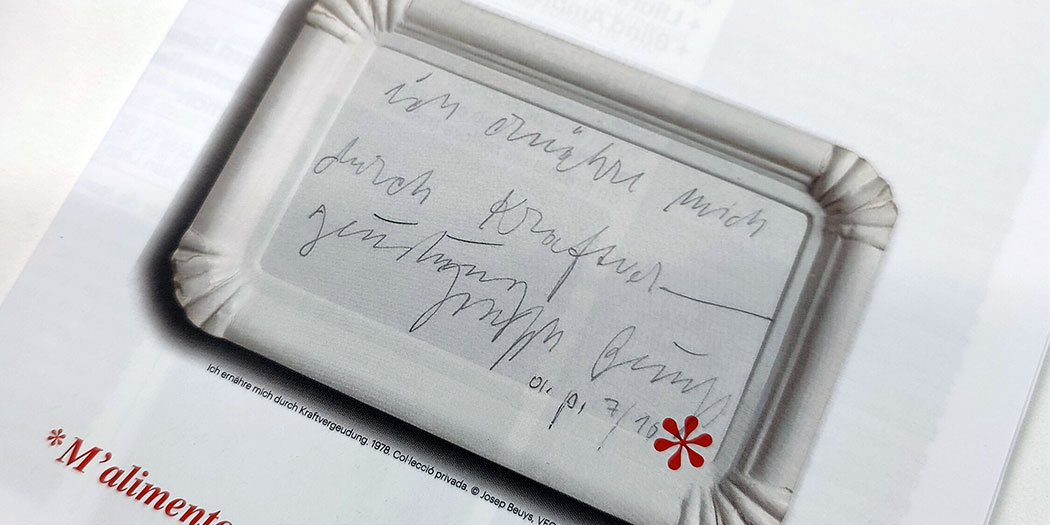 ich ernähre mich
durch Kraftver—
geudung
Joseph Beuys
7/10
*
Ich ernähre mich durch Kraftvergeudung. 1978. Col·lecció privada. © Josep Beuys, VEG
*M'alimento